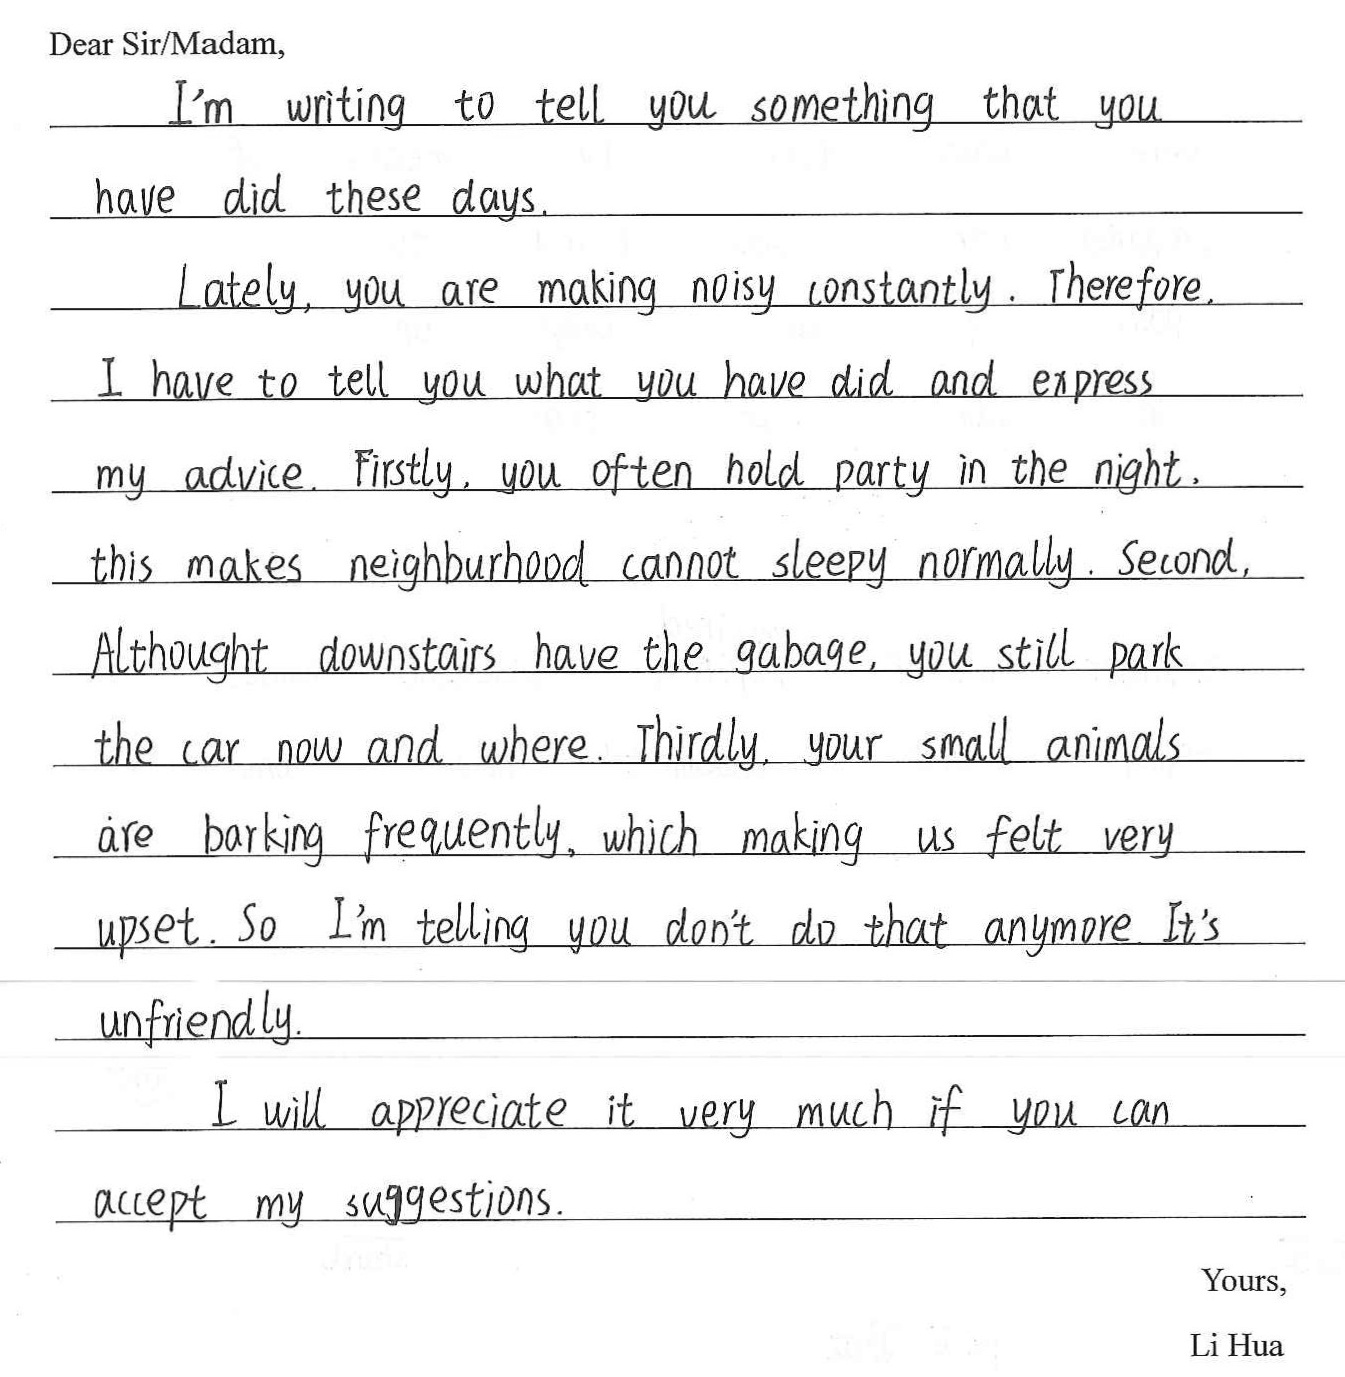 Dear Sir/Madam,
I'm writing to tell you something that you
have did these days.
Lately, you are making noisy constantly. Therefore,
I have to tell you what you have did and express
my advice. Firstly, you often hold party in the night,
this makes neighburhood cannot sleepy normally. Second,
Althought downstairs have the gabage, you still park
the car now and where. Thirdly, your small animals
are barking frequently, which making us felt very
upset. So I'm telling you don't do that anymore It's
unfriendly.
I will appreciate it very much if you can
accept my suggestions.
Yours,
Li Hua